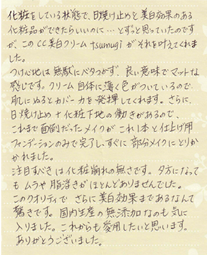 化粧をしている状態で、日焼け止めと美白効果のある
化粧品ができたらいいのに…とずっと思っていたのですが、
このCC美白クリームtsumugiがそれを叶えてくれまし
た。
つけ心地は無駄にベタつかず、良い意味でマットな
感じです。クリーム自体に薄く色がついているので、
肌にぬるとカバー力を発揮してくれます。さらに、
日焼け止め＋化粧下地の働きがあるので、
これまで面倒だったメイクがこれ1本と仕上げ用
ファンデーションのみで完了しすぐに部分メイクにとりか
かれました。
注目すべきは化粧崩れの無さです。夕方になって
もムラや脂浮きがほとんどありませんでした。
このクオリティでさらに美白効果まであるなんて
驚きです。国内生産の無添加なのも気に
入りました。これからも愛用したいと思います。
ありがとうございました。